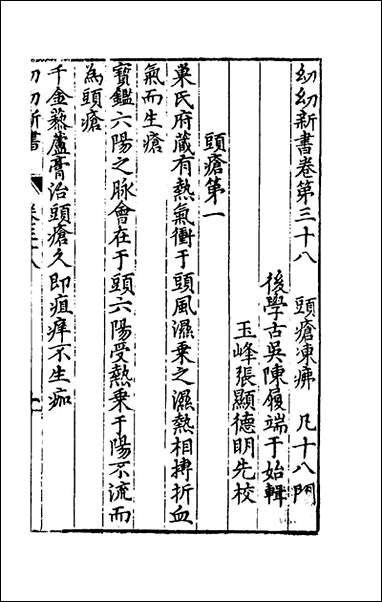 幼幼新書卷第三十八　頭瘡凍瘃　凡十八門
後學古吳陳履端于始輯
玉峰張顯德明先校
頭瘡第一
巢氏府藏有熱氣衝于頭風濕乗之濕熱相摶折血
氣而生瘡
寶鑑六陽之脉會在于頭六陽受熱乗于陽不流而
為頭瘡
千金藜蘆膏治頭瘡久即疽痒不生痂
幼幼新書　卷三十八